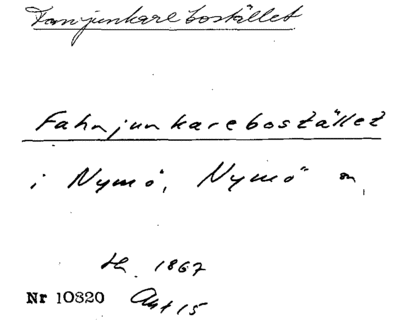 Fanjunkarebostället
Fahnjunkarebostället
i Nymö, Nymö sn,
1867
Nr 10820 Akt 15